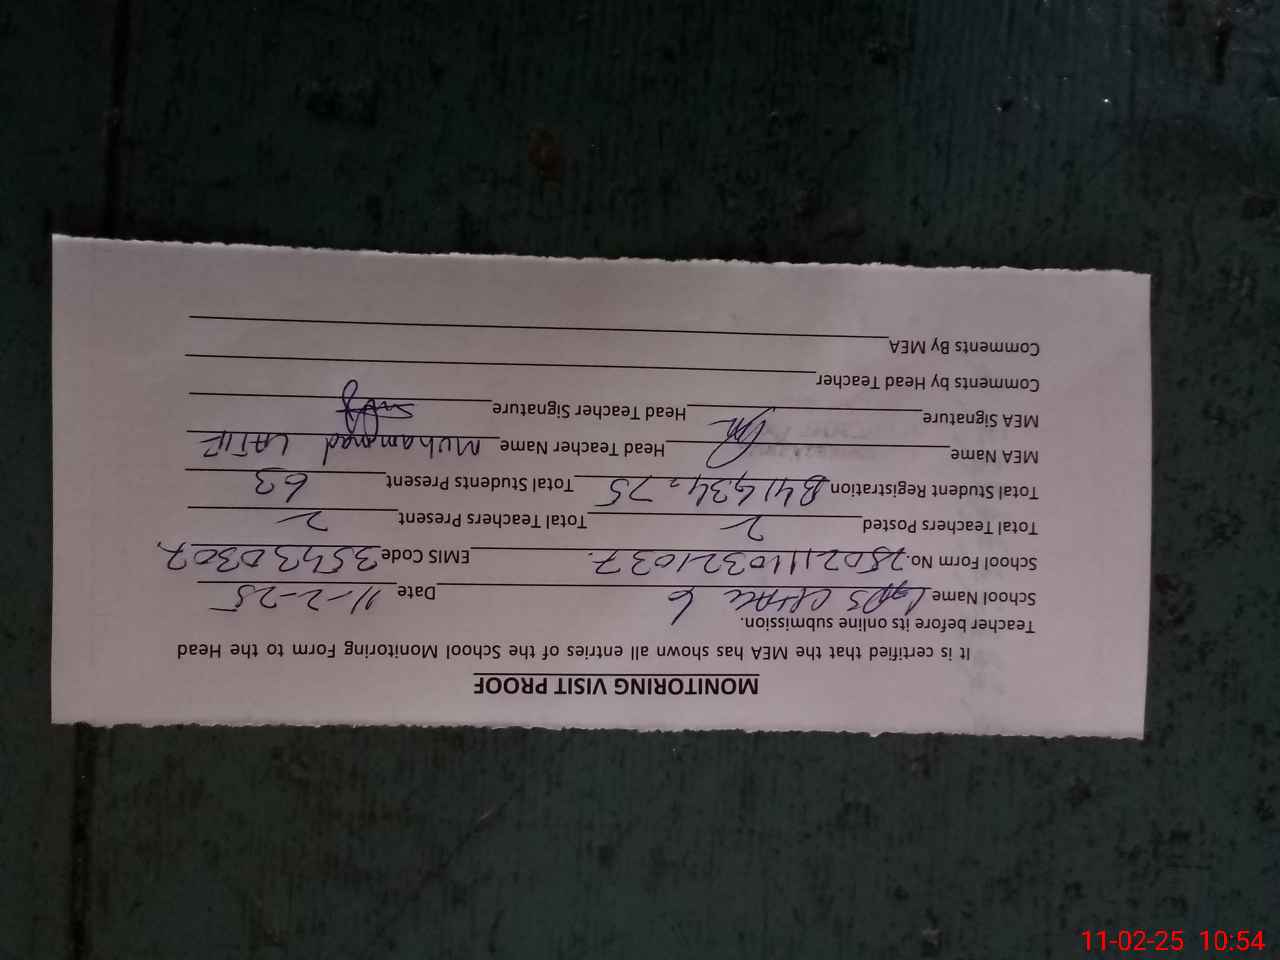 MONITORING VISIT PROOF
It is certified that the MEA has shown all entries of the School Monitoring Form to the Head
Teacher before its online submission.
School Name GPS CHAK 6 Date 11-2-25
School Form No. 25021110321037. EMIS Code 35430307
Total Teachers Posted 2 Total Teachers Present 2
Total Student Registration B41+34=75 Total Students Present 63
MEA Name Head Teacher Name Muhammad LATIF
MEA Signature Head Teacher Signature
Comments by Head Teacher
Comments By MEA
11-02-25 10:54